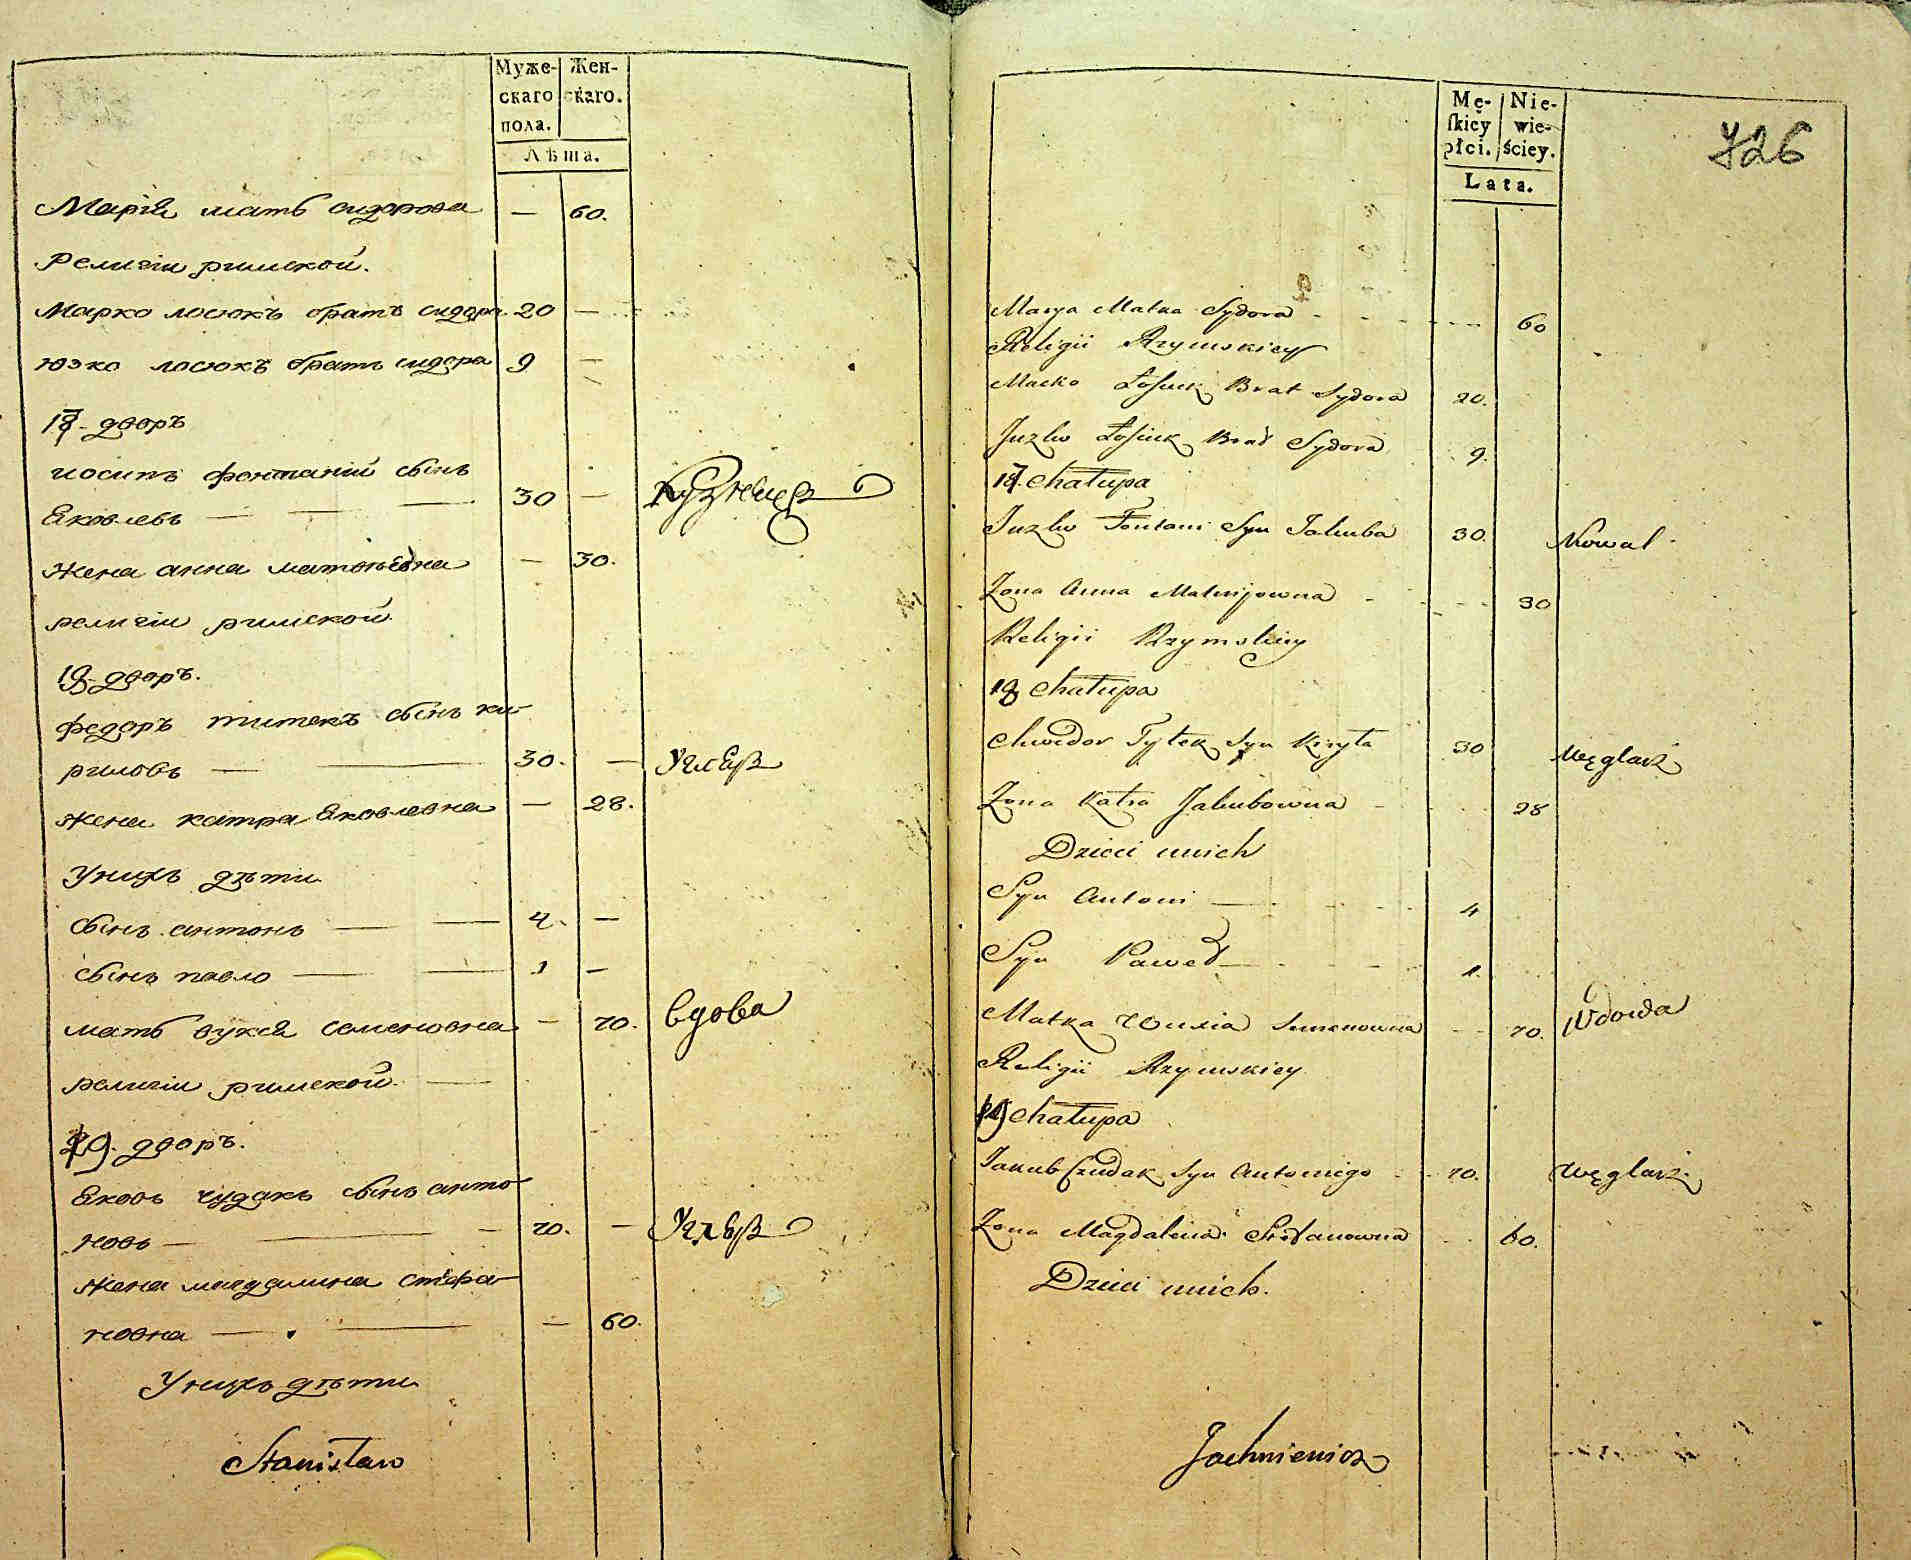 Муже-
скаго
пола.
Жен-
скаго.
Лѣта.
Марія мать сидорова — 60.
Религіи римской.
Марко лосюкъ братъ сидора 20 —
юзко лосюкъ братъ сидора 9 —
17 дворъ
иосипъ фонтаній сынъ
Яковлевъ — 30 — Кузнецъ
жена анна матвѣевна — 30.
религіи римской.
18. дворъ.
федоръ титекъ сынъ ки-
риловъ — 30. — Углѣръ
жена катра Яковлевна — 28.
У нихъ дѣти
сынъ антонъ — 4. —
сынъ павло — 1 —
мать вукся семеновна — 70. вдова
религіи римской. —
19. дворъ.
Яковъ чудакъ сынъ анто-
новъ — 70. —
жена магдалина стефа-
новна — 60.
У нихъ дѣти
Stanisław
Mę-
ſkiey
płci.
Nie-
wie-
ściey.
Lata.
726
Marya Matka Sydora 60
Religii Rzymskiey
Marko Łosiuk Brat Sydora 20.
Juzko Łosiuk Brat Sydora 9.
17. Chałupa
Juzko Fontani Syn Jakuba 30. Kowal
Zona Anna Matwijowna 30
Religii Rzymskiey
18 Chałupa
Chwedor Tytek Syn Kiryła 30 Węglarz
Zona Katra Jakubowna 28
Dzieci u nich
Syn Antoni — 4
Syn Paweł — 1.
Matka Wuxia Semenowna 70. Wdowa
Religii Rzymskiey
19 Chałupa
Jakub Czudak Syn Antoniego 70. Węglarz.
Zona Magdalena Stefanowna 60.
Dzieci u nich.
Jachniewicz